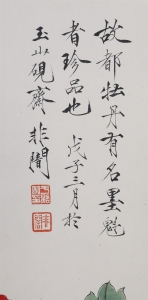 故都牡丹有名墨魁
者珍品也 戊子三月於
玉山硯齋 非闇